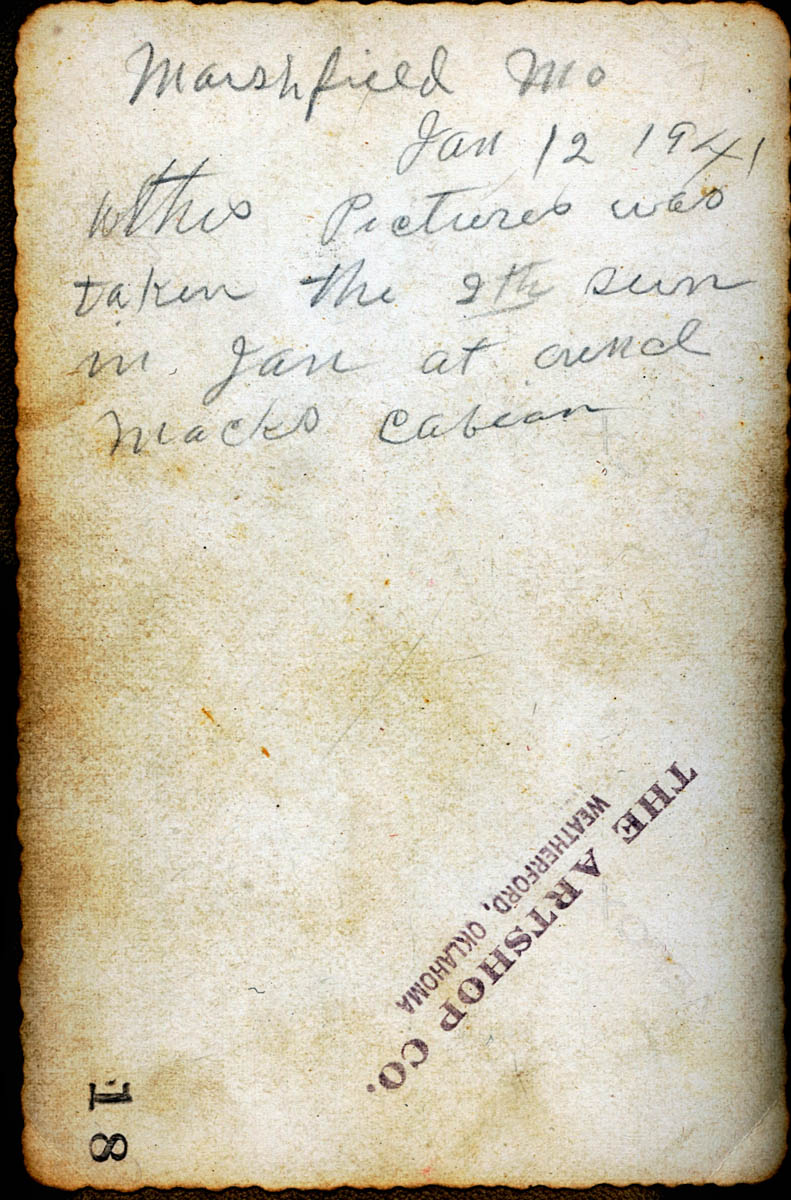 Marshfield Mo
Jan 12 1941
this Pictures was
taken the 2th sun
in Jan at
Macks Cabean
THE ARTSHOP CO.
WEATHERFORD, OKLAHOMA
18